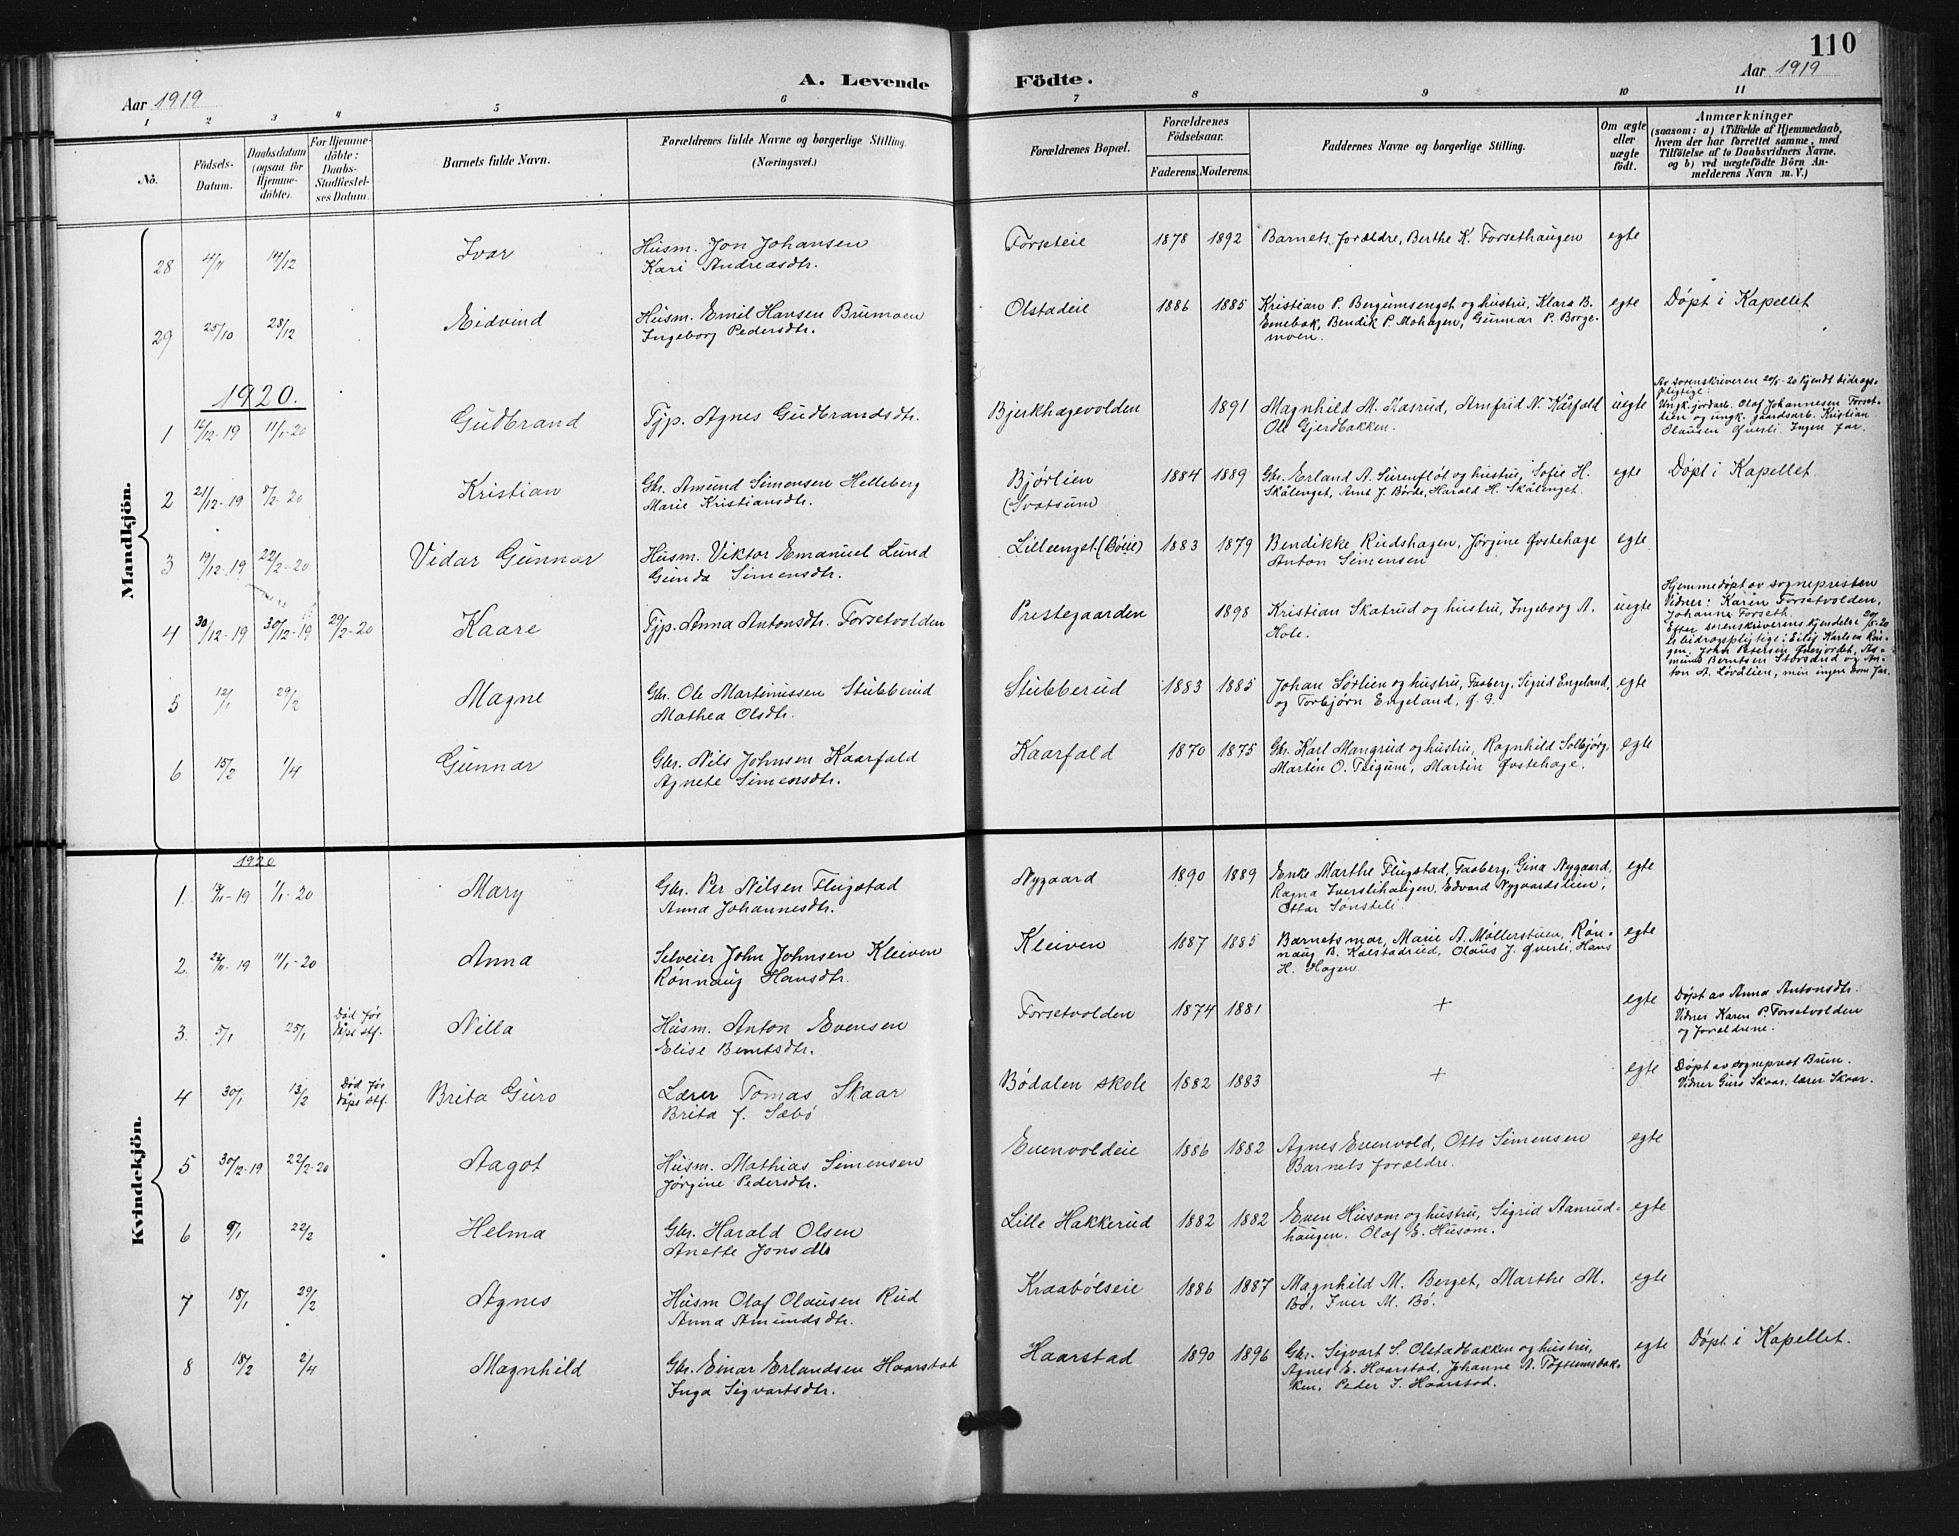 110
A. Levende Födte.
Aar 1919
Aar 1919
1 2 3 4 5 6 7 8 9 10 11
No.
Födsels-Datum.
Daabsdatum (ogsaa for Hjemme-døbte).
For Hjemme-døbte: Daabs-Stadfæstel-ses Datum.
Barnets fulde Navn.
Forældrenes fulde Navne og borgerlige Stilling. (Næringsvei.)
Forældrenes Bopæl.
Forældrenes Födselsaar.
Faderens. Moderens.
Faddernes Navne og borgerlige Stilling.
Om ægte eller uægte födt.
Anmærkninger
(saasom: a) i Tilfælde af Hjemmedaab, hvem der har forrettet samme, med Tilföielse af to Daabsvidners Navne, og b) ved uægtefödte Börn An-melderens Navn m. V.)
Mandkjön.
28 4/11 14/12 Ivar Husm. Jon Johansen Forseteie 1878 1892 Barnets forældre, Berthe K. Forsethaugen egte
Kari Andreasdtr.
29 25/10 28/12 Eidvind Husm. Emil Hansen Brumoen Olstadeie 1886 1885 Kristian P. Bergumsenget og hustru, Klara B. egte Døpt i Kapellet
Ingeborg Pedersdtr. Enebak, Bendik P. Mohagen, Gunnar P. Borge-
moen.
1920.
1 12/12-19 11/1-20 Gudbrand Tjp. Agnes Gudbrandsdtr. Bjerkhagevolden 1891 Magnhild M. Kasrud, Arnfrid N. Kårfald uegte
Ole Gjerdbakken.
Av sorenskriveren 20/5-20 kjendt bidrags-
pligtige:
Ungk. jordarb. Olaf Johannesen Forset-
lien og ungk. gaardsarb. Kristian
Olausen Øverli. Ingen far.
2 21/12-19 8/2-20 Kristian Gbr. Amund Simensen Helleberg Bjørlien 1884 1889 Gbr. Erland A. Surenfløt og hustru, Sofie H. egte Døpt i Kapellet
Marie Kristiansdtr. (Svatsum) Skålenget, Arnt J. Børke, Harald H. Skålenget.
3 19/12-19 22/2-20 Vidar Gunnar Husm. Viktor Emanuel Lund Lillenget (Bøeie) 1883 1879 Bendikke Rudshagen, Jørgine Øvstehage egte
Gunda Simensdtr. Anton Simensen
4 30/12-19 30/12-19 29/2-20 Kaare Tjp. Anna Antonsdtr. Forsetvolden Prestegaarden 1898 Kristian Skatrud og hustru, Ingeborg A. uegte
Hole.
Hjemmedøpt av sognepresten
Vidner: Karen Forsetvolden,
Johanne Forseth.
Efter sorenskriverens kjendelse 20/5-20
er bidragspligtige: Eilif Karlsen Rau-
gen, John Petersen Øvrejordet, As-
mund Berntsen Storsdrud og An-
ton A. Løvålien, min ingen som far.
5 12/1 29/2 Magne Gbr. Ole Martinussen Stubberud Stubberud 1883 1885 Johan Sørlien og hustru, Faaberg, Sigrid Engeland, egte
Mathea Olsdtr. og Torbjørn Engeland, Ø. G.
6 15/2 1/4 Gunnar Gbr. Nils Johnsen Kaarfald Kaarfald 1870 1875 Gbr. Karl Mangrud og hustru, Ragnhild Solbjørg, egte
Agnete Simensdtr. Martin O. Trigum, Martin Øvstehage.
Kvindekjön.
1920
1. 19 1/1-20 Mary Gbr. Per Nilsen Flugstad Nygaard 1890 1889 Enke Marthe Flugstad, Faaberg, Gina Nygaard, egte
Anna Johannesdtr. Ragna Iverslihaugen, Edvard Nygaardslien,
Ottar Sønsteli.
2. 22/11-19 11/1-20 Anna Selveier John Johnsen Kleiven Kleiven 1887 1885 Barnets mor, Marie A. Møllerstuen, Røn- egte
Rønnaug Hansdtr. naug B. Kalstadrud, Olaus J. Øverli, Hans
H. Hagen.
3. 5/1 25/1 Død før dåps stf. Nilla Husm. Anton Evensen Forsetvolden 1874 1881 + egte Døpt av Anna Antonsdtr.
Elise Berntsdtr. Vidner Karen P. Forsetvolden
og forældrene.
4 30/1 13/2 Død før dåps stf. Brita Guro Lærer Tomas Skaar Bødalen skole 1882 1883 + egte Døpt av sogneprest Brun.
Brita f. Sæbø Vidner Guro Skaar, lærer Skaar.
5 30/12-19 22/2-20 Aagot Husm. Mathias Simensen Evenvoldeie 1886 1882 Agnes Evenvold, Otto Simensen egte
Jørgine Pedersdtr. Barnets forældre.
6 9/1 22/2 Helma Gbr. Harald Olsen Lille Hakkerud 1882 1882 Even Husom og hustru, Sigrid Aanrud- egte
Anette Jonsdtr haugen. Olaf E. Husom.
7 18/1 29/2 Agnes Husm Olaf Olausen Rud Kraabølseie 1886 1887 Magnhild M. Berget, Marthe M. egte
Anna Amundsdtr. Bø, Iver M. Bø.
8 18/2 2/4 Magnhild Gbr. Einar Erlandsen Haarstad Haarstad 1890 1896 Gbr. Sigvart S. Olstadbakken og hustru, egte Døpt i Kapellet.
Inga Sigvartsdtr. Agnes E. Haarstad, Johanne A. Toftumsbak-
ken, Peder J. Haarstad.